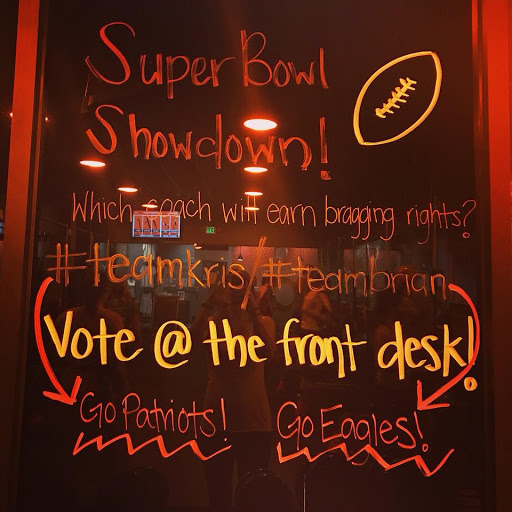 Super Bowl
Showdown!
Which coach will earn bragging rights?
#teamkris/#teambrian
Vote @ the front desk!
Go Patriots! Go Eagles!